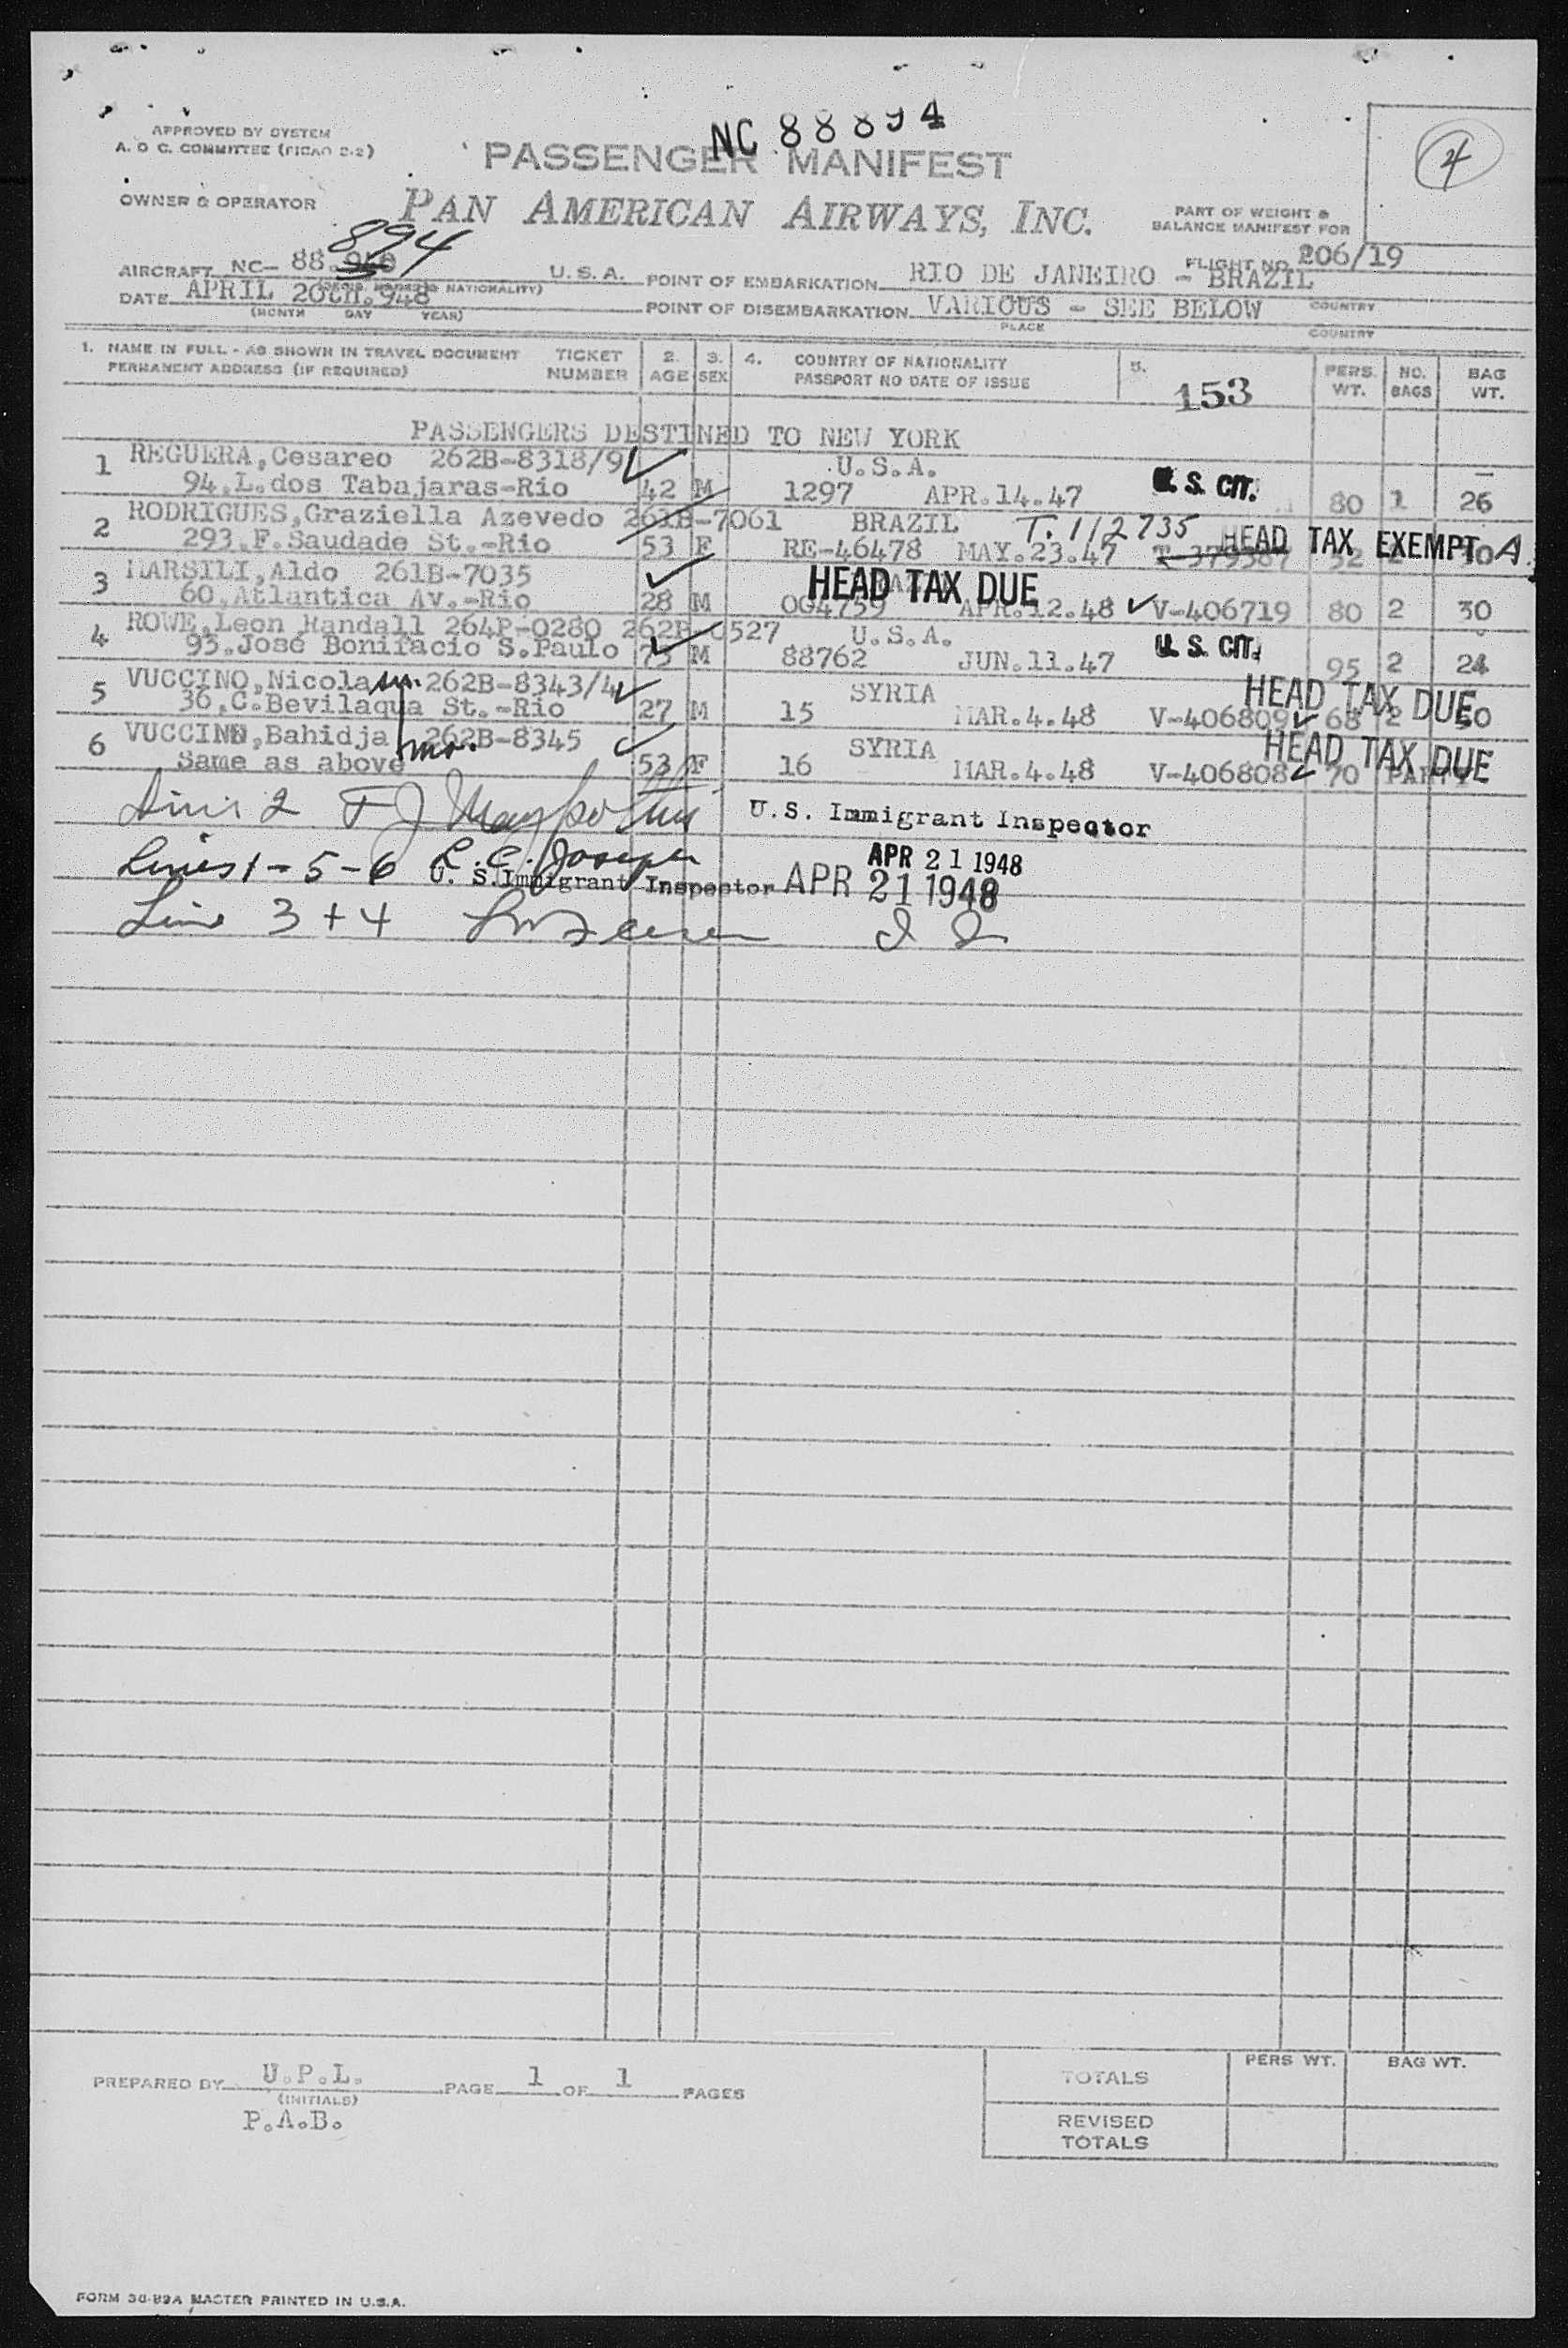 NC 88894
APPROVED BY SYSTEM
A. O C. COMMITTEE (PICAO 2-2)
PASSENGER MANIFEST
4
OWNER & OPERATOR
PAN AMERICAN AIRWAYS, INC.
PART OF WEIGHT &
BALANCE MANIFEST FOR
FLIGHT NO. 206/19
894
AIRCRAFT NC- 88. U. S. A. POINT OF EMBARKATION RIO DE JANEIRO - BRAZIL
NATIONALITY)
DATE APRIL 20th.948 POINT OF DISEMBARKATION VARIOUS - SEE BELOW COUNTRY
(MONTH DAY YEAR) PLACE COUNTRY
1. NAME IN FULL - AS SHOWN IN TRAVEL DOCUMENT TICKET 2. 3. 4. COUNTRY OF NATIONALITY 5. PERS. NO. BAG
PERMANENT ADDRESS (IF REQUIRED) NUMBER AGE SEX PASSPORT NO DATE OF ISSUE 153 WT. BAGS WT.
PASSENGERS DESTINED TO NEW YORK
1 REGUERA,Cesareo 262B-8318/9 U.S.A.
94.L.dos Tabajaras-Rio 42 M 1297 APR.14.47 U. S. CIT. 80 1 26
2 RODRIGUES,Graziella Azevedo 261B-7061 BRAZIL T. 1/2735 HEAD TAX EXEMPT A
293.F.Saudade St.-Rio 53 F RE-46478 MAY.23.47
3 MARSILI,Aldo 261B-7035 HEAD TAX DUE
60,Atlantica Av.-Rio 28 M 004759 APR.12.48 V-406719 80 2 30
4 ROWE,Leon Randall 264P-0280 262B-0527 U.S.A.
93.José Bonifacio S.Paulo 73 M 88762 JUN.11.47 U. S. CIT. 95 2 24
5 VUCCINO,Nicola 262B-8343/4 SYRIA HEAD TAX DUE
36,C.Bevilaqua St.-Rio 27 M 15 MAR.4.48 V-406809 68 2
6 VUCCINO,Bahidja 262B-8345 SYRIA HEAD TAX DUE
mo.
Same as above 53 F 16 MAR.4.48 V-406808 70 PARTY
Line 2 U.S. Immigrant Inspector
Lines 1-5-6 L. C. Joseph APR 21 1948
U. S. Immigrant Inspector APR 21 1948
Line 3 + 4
PREPARED BY U.P.L. PAGE 1 OF 1 PAGES
(INITIALS)
P.A.B.
PERS WT. BAG WT.
TOTALS
REVISED
TOTALS
FORM 38-B9A MASTER PRINTED IN U.S.A.